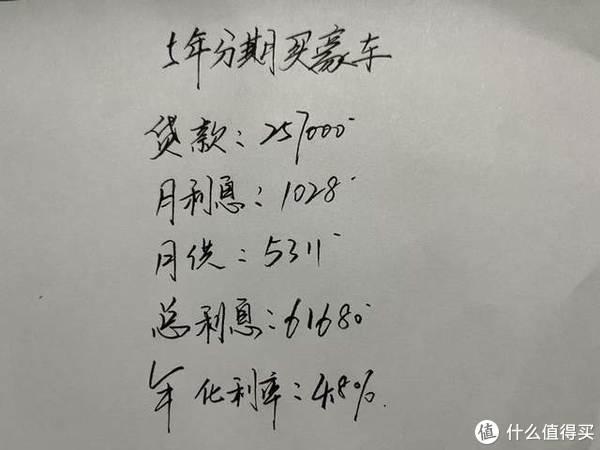 5年分期买豪车
贷款：257000
月利息：1028
月供：5311
总利息：61680
年化利率：4.8%
值 什么值得买